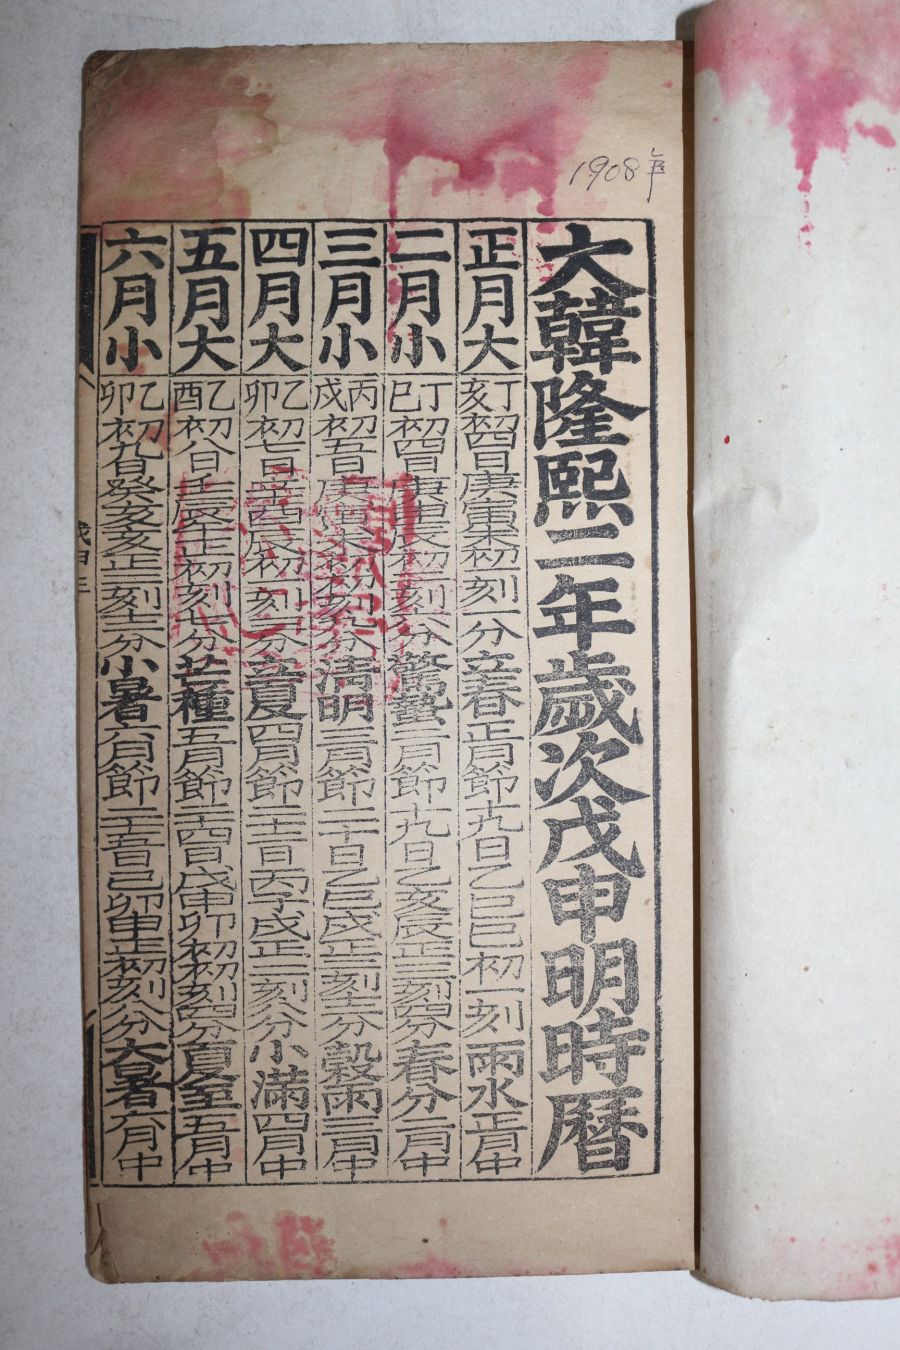 1908年
大韓隆熙二年歲次戊申明時曆
正月大
丁亥初四日庚寅未初初刻一分立春正月節十九日乙巳巳初一刻雨水正月中
二月小
丁巳初四日庚申辰初二刻六分驚蟄二月節十九日乙亥辰正三刻四分春分二月中
三月小
丙戌初五日庚寅未初初刻九分淸明三月節二十日乙巳戌正二刻十二分穀雨三月中
四月大
乙卯初七日辛酉辰初一刻二分立夏四月節二十二日丙子戌正二刻八分小滿四月中
五月大
乙酉初八日壬辰午正初刻七分芒種五月節二十四日戊申卯初初刻四分夏至五月中
六月小
乙卯初九日癸亥亥正三刻十二分小暑六月節二十五日己卯申正初刻八分大暑六月中